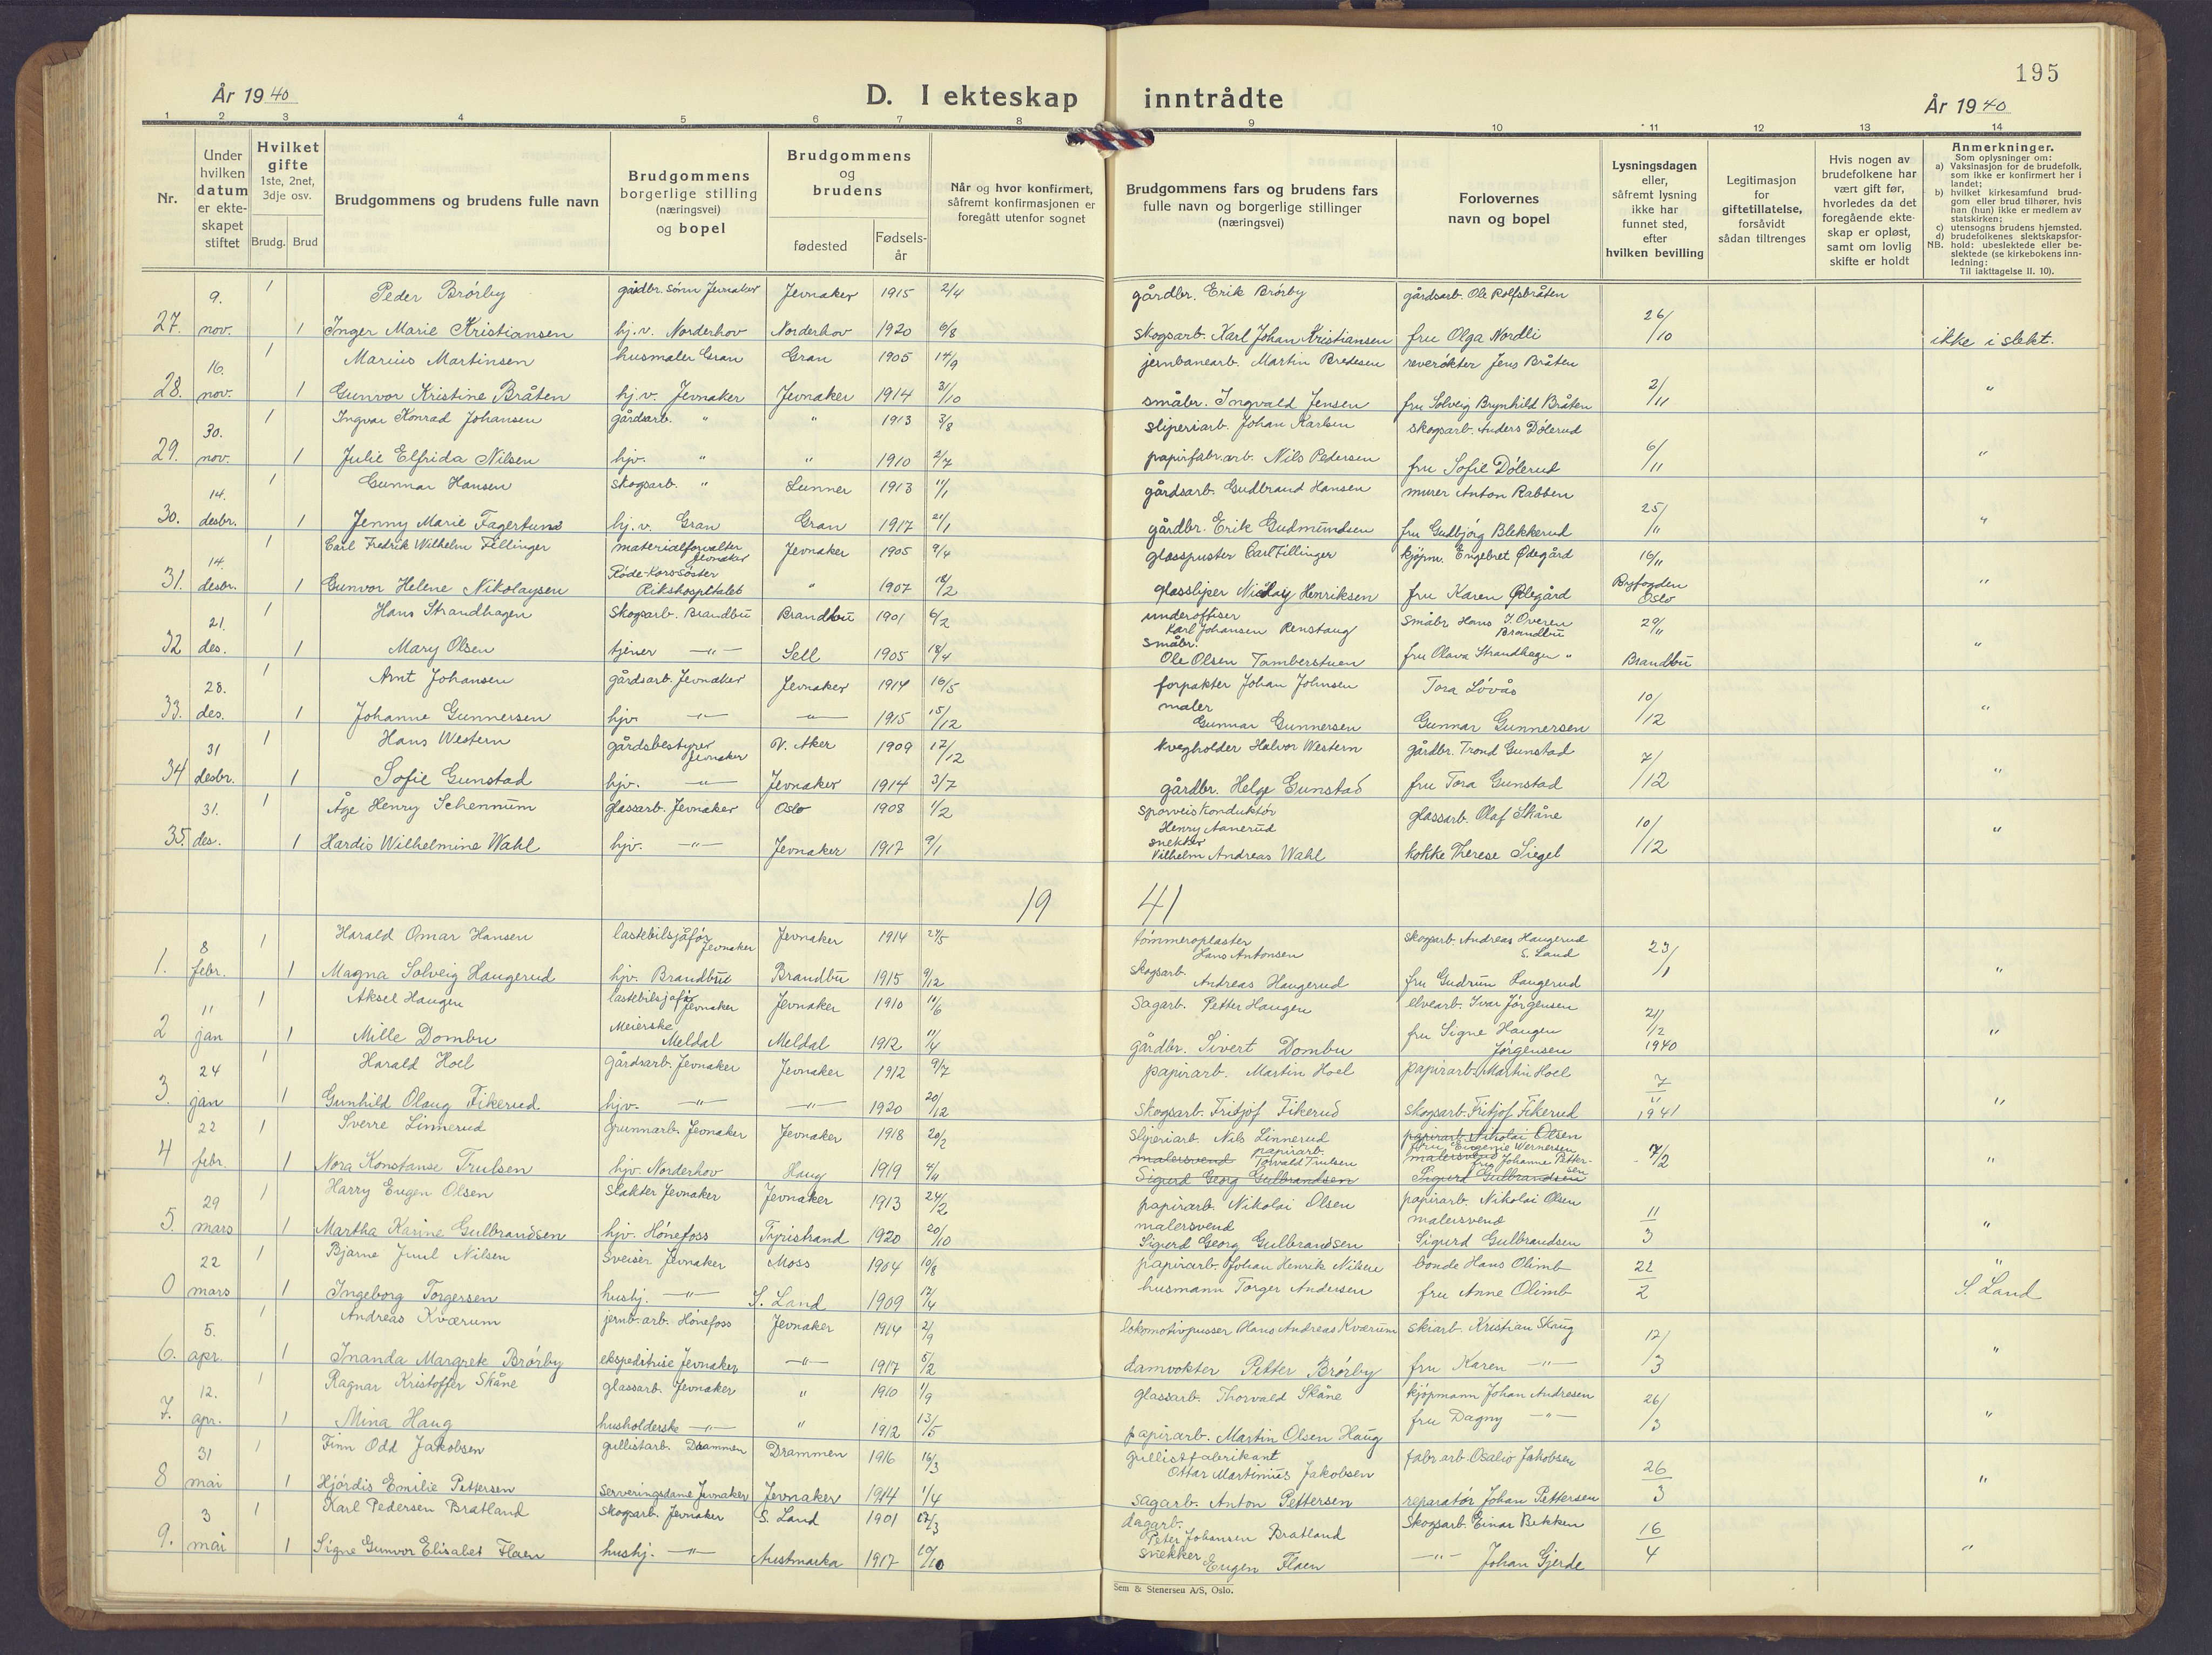 195
År 1940
D. I ekteskap inntrådte
År 1940
1 2 3 4 5 6 7 8 9 10 11 12 13 14
Nr.
Under hvilken datum er ekteskapet stiftet
Hvilket gifte 1ste, 2net, 3dje osv.
Brudg. Brud
Brudgommens og brudens fulle navn
Brudgommens borgerlige stilling (næringsvei) og bopel
Brudgommens og brudens
fødested
Fødselsår
Når og hvor konfirmert, såfremt konfirmasjonen er foregått utenfor sognet
Brudgommens fars og brudens fars fulle navn og borgerlige stillinger (næringsvei)
Forlovernes navn og bopel
Lysningsdagen eller, såfremt lysning ikke har funnet sted, efter hvilken bevilling
Legitimasjon for giftetillatelse, forsåvidt sådan tiltrenges
Hvis nogen av brudefolkene har vært gift før, hvorledes da det foregående ekteskap er opløst, samt om lovlig skifte er holdt
Anmerkninger.
Som oplysninger om:
a) Vaksinasjon for de brudefolk, som ikke er konfirmert her i landet;
b) hvilket kirkesamfund brudgom eller brud tilhører, hvis han (hun) ikke er medlem av statskirken;
c) utensogns brudens hjemsted.
d) brudefolkenes slektskapsforhold: ubeslektede eller beslektede (se kirkebokens innledning:
NB. Til iakttagelse II. 10).
9. 1 Peder Brørby gårdbr. sønn Jevnaker Jevnaker 1915 2/4 gårdbr. Erik Brørby gårdsarb. Ole Rolfsbråten
27. nov. 1 Inger Marie Kristiansen hj.v. Norderhov Norderhov 1920 6/8 skogsarb. Karl Johan Kristiansen fru Olga Nordli 26/10 ikke i slekt.
16. 1 Marius Martinsen husmaler Gran Gran 1905 14/9 jernbanearb. Martin Bredesen reverøkter Jens Bråten
28. nov. 1 Gunvor Kristine Bråten hj.v. Jevnaker Jevnaker 1914 3/10 småbr. Ingvald Jensen fru Solveig Brynhild Bråten 2/11 "
30. 1 Ingvar Konrad Johansen gårdsarb. " " 1913 3/8 sliperiarb. Johan Karlsen skogsarb. Anders Dølerud
29. nov. 1 Julie Elfrida Nilsen hjv. " " 1910 2/7 papirfabr.arb. Nils Pedersen fru Sofie Dølerud 6/11 "
14. 1 Gunnar Hansen skogsarb. " Lunner 1913 11/1 gårdsarb. Gudbrand Hansen murer Anton Rabben
30. desbr. 1 Jenny Marie Fagertun hj.v. Gran Gran 1917 21/1 gårdbr. Erik Gudmundsen fru Gudbjørg Blekkerud 25/11 "
14. 1 Carl Fredrik Wilhelm Fillinger materialforvalter Jevnaker Jevnaker 1905 9/4 glasspuster Carl Fillinger kjøpm. Engebret Ødegård 16/11
31. desbr. 1 Gunvor Helene Nikolaysen Røde-Korssøster Rikshospitalet " 1907 18/2 glassliper Nicolay Henriksen fru Karen Ødegård Byfogden Oslo "
21. 1 Hans Strandhagen Skogsarb. Brandbu Brandbu 1901 6/2 underoffiser Karl Johansen Renstaug småbr Hans J. Overen Brandbu 29/11
32 des. 1 Mary Olsen tjener —"— Sell 1905 18/4 småbr. Ole Olsen Tomberstuen fru Olava Strandhagen " Brandbu "
28. 1 Arnt Johansen gårdsarb. Jevnaker Jevnaker 1914 16/5 forpakter Johan Johnsen Tora Løvås
33. des. 1 Johanne Gunnersen hjv. —"— —"— 1915 15/12 maler Gunnar Gunnersen Gunnar Gunnersen 10/12 "
31 1 Hans Western gårdsbestyrer Jevnaker V. Aker 1909 17/12 kvegholder Halvor Western gårdbr. Trond Gunstad
34 desbr. 1 Sofie Gunstad hjv. —"— Jevnaker 1914 3/7 gårdbr. Helge Gunstad fru Tora Gunstad 7/12 "
31. 1 Åge Henry Schennum glassarb. Jevnaker Oslo 1908 1/2 sporveiskonduktør Henry Aanerud glassarb. Olaf Skåne
35. des. 1 Hardis Wilhelmine Wahl hjv. —"— Jevnaker 1917 9/1 snekker Vilhelm Andreas Wahl kokke Therese Siegel 10/12 "
19 41
8 1 Harald Omar Hansen lastebilsjåfør Jevnaker Jevnaker 1914 24/5 tømmeroplaster Hans Antonsen skogsarb. Andreas Haugerud S. Land
1. febr. 1 Magna Solveig Haugerud hjv. Brandbu Brandbu 1915 9/12 skogsarb. Andreas Haugerud fru Gudrun Haugerud 23/1 "
11 1 Aksel Haugen lastebilsjåfør Jevnaker Jevnaker 1910 10/6 sagarb. Petter Haugen elvearb. Ivar Jørgensen
2 jan 1 Mille Dombu Meierske Meldal Meldal 1912 11/4 gårdbr. Sivert Dombu fru Signe Haugen Jørgensen 21/12 1940 "
24 1 Harald Hoel gårdsarb. Jevnaker Jevnaker 1912 9/7 papirarb. Martin Hoel papirarb. Martin Hoel
3. jan 1 Gunhild Olaug Fikerud hjv. —"— —"— 1920 20/12 skogsarb. Fritjof Fikerud skogsarb. Fritjof Fikerud 1941 "
22 1 Sverre Linnerud grunnarb. Jevnaker Jevnaker 1918 20/2 sliperiarb. Nils Linnerud papirarb. Nikolai Olsen fru Eugenie Wernersen
4 febr. 1 Nora Konstanse Trulsen hjv. Norderhov Haug 1919 4/11 malersvend papirarb. Torvald Trulsen Sigurd Georg Gulbrandsen malersvend fru Johanne Pettersen Sigurd Gulbrandsen 7/2 "
29 1 Harry Eugen Olsen slakter Jevnaker Jevnaker 1913 24/2 papirarb. Nikolai Olsen papirarb. Nikolai Olsen
5. mars 1 Martha Karine Gulbrandsen hjv. Hønefoss Tyristrand 1920 20/10 malersvend Sigurd Georg Gulbrandsen malersvend Sigurd Gulbrandsen 11/3 "
22 1 Bjarne Juul Nilsen sveiser Jevnaker Moss 1904 10/8 papirarb. Johan Henrik Nilsen bonde Hans Olimb "
0 mars 1 Ingeborg Torgersen hushj. —"— S. Land 1909 12/4 husmann Torger Andersen fru Anne Olimb 22/2 S. Land
5. 1 Andreas Kværum jernb.arb. Hønefoss Jevnaker 1914 2/9 lokomotivpusser Hans Andreas Kværum skiarb. Kristian Skaug
6. apr. 1 Inanda Margrete Brørby ekspeditrise Jevnaker —"— 1917 5/2 damvokter Petter Brørby fru Karen —"— 12/3 "
12. 1 Ragnar Kristoffer Skåne glassarb. Jevnaker " 1910 1/9 glassarb. Thorvald Skåne kjøpmann Johan Andresen
7. apr. 1 Mina Haug husholderske —"— " 1912 13/5 papirarb. Martin Olsen Haug fru Dagny —"— 26/3 "
31 1 Finn Odd Jakobsen gullistarb. Drammen Drammen 1916 16/3 gullistfabrikant Ottar Martinius Jakobsen fabr.arb. Jakobsen
8 mai 1 Hjørdis Emilie Pettersen serveringsdame Jevnaker Jevnaker 1914 1/4 sagarb. Anton Pettersen reparatør Johan Pettersen 26/3 "
3 1 Karl Pedersen Bratland skogsarb. Jevnaker S. Land 1901 17/3 dagarb. Peter Johansen Bratland skogsarb. Einar Bekken
9. mai 1 Signe Gunvor Elisabet Flaen hushj. —"— Austmarka 1917 snekker Eugen Flaen —"— Johan Gjerde 16/4 "
Sem & Stenersen A/S, Oslo.